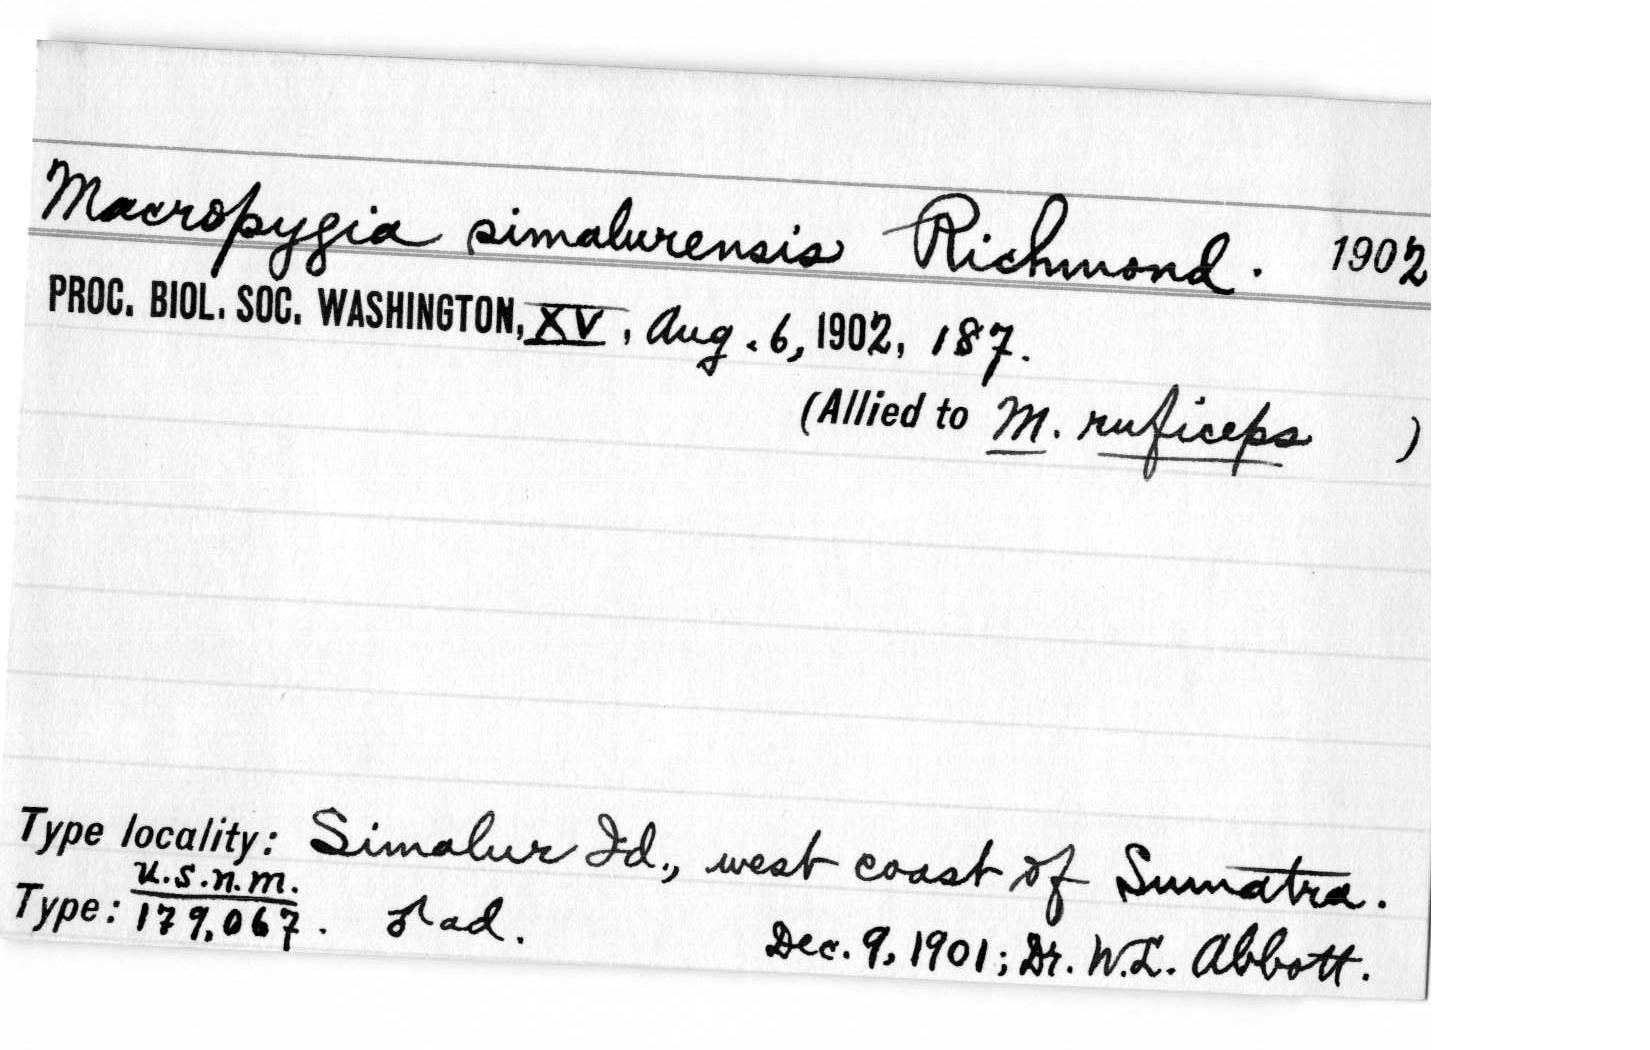 Macropygia simalurensis Richmond. 1902
PROC. BIOL. SOC. WASHINGTON, XV, Aug. 6, 1902, 187.
(Allied to M. ruficeps )
Type locality: Simalur Id., west coast of Sumatra.
U.S.N.M.
Type: 179,067. ♂ ad. Dec. 9, 1901; Dr. W.L. Abbott.